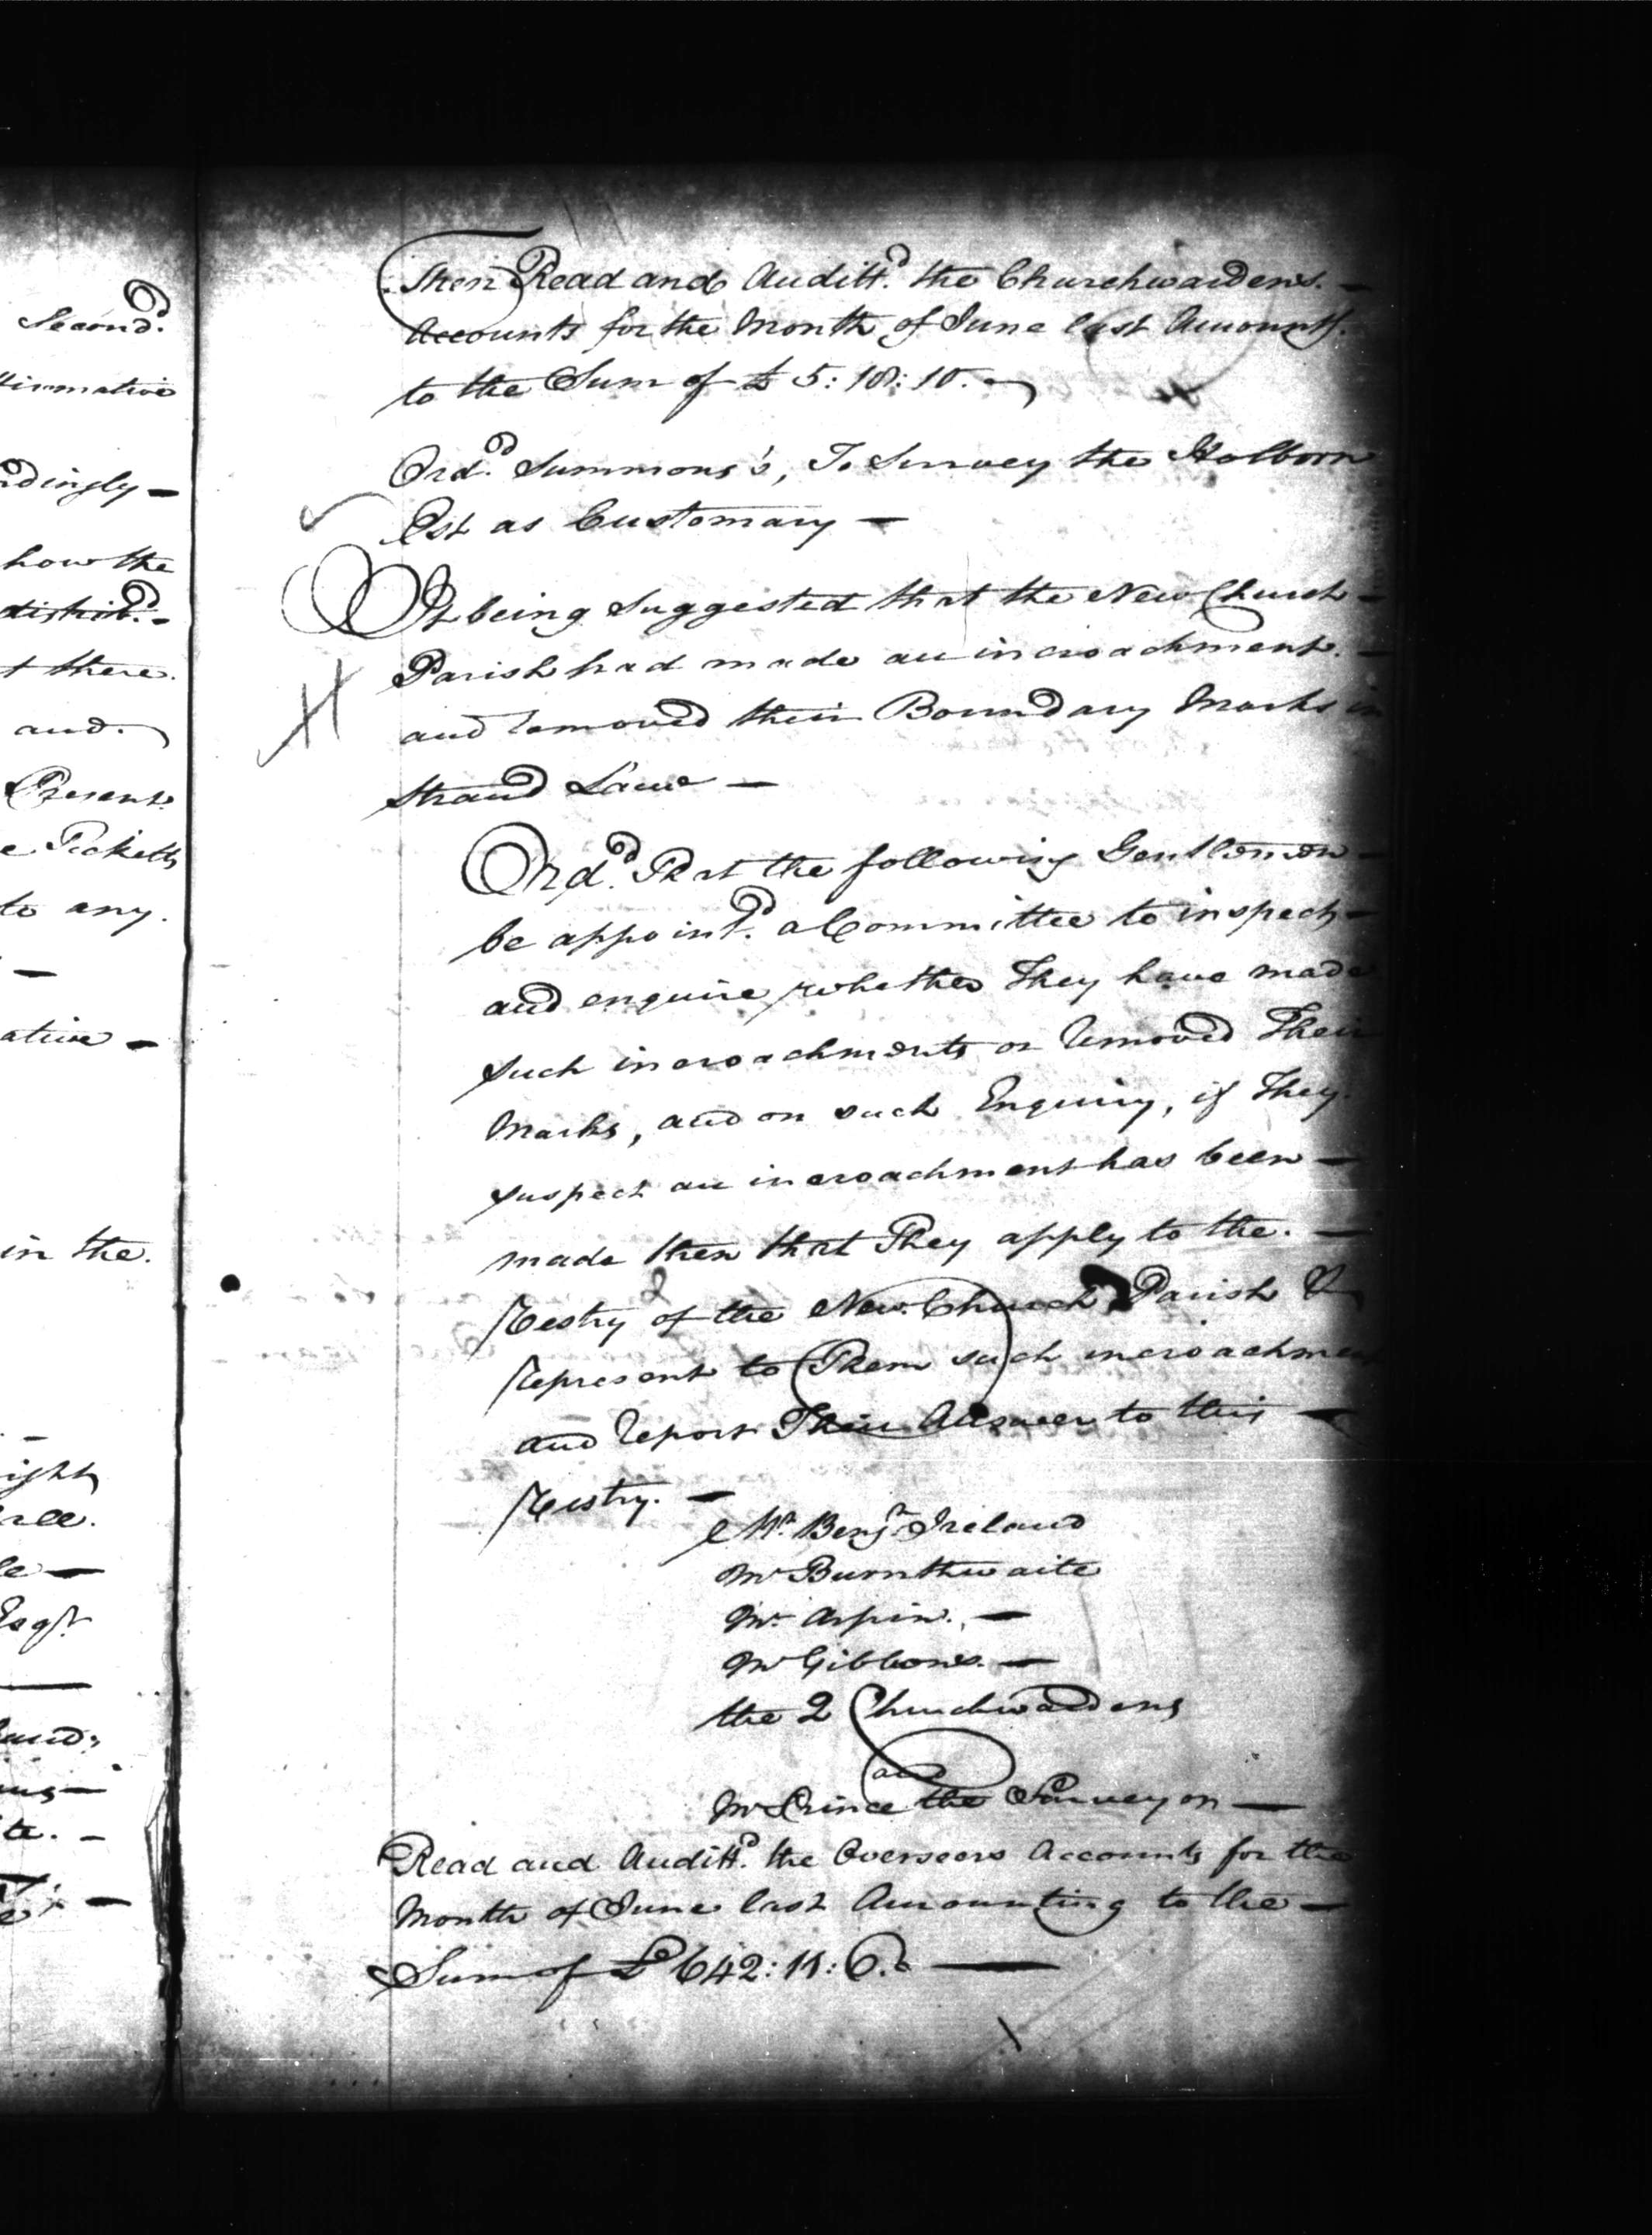 Second.
firmative
rdingly —
how the
distrib.d -
t there.
and.
Present
e Ticketts
to any.
—
ative —
in the.
ight
Esqr.
Then Read and Auditt.d the Churchwardens. —
Accounts for the Month of June last Amountg.
to the Sum of £ 5: 18: 10. —
Ord.d Summons's, To Survey the Holborn
Est as Customary —
It being Suggested that the New Church —
Parish had made an incroachment. —
and removed their Boundary Marks in
Strand Lane —
Ord.d That the following Gentlemen —
be appoint.d a Committee to inspect —
and enquire whether They have made
such incroachments or removed Their
Marks, and on such Enquiry, if They.
suspect an incroachment has been —
made then that They apply to the. —
Vestry of the New Church Parish &
Represent to Them such incroachment
and report Their Answer to this —
Vestry. —
Mr. Benj.n Ireland
Mr Burnthwaite
Mr. Arpin. —
Mr Gibbons. —
the 2 Churchwardens
and
Mr Prince the Surveyor —
Read and Auditt.d the Overseers Accounts for the
Month of June last Amounting to the —
Sum of £ 642: 11: 6. —